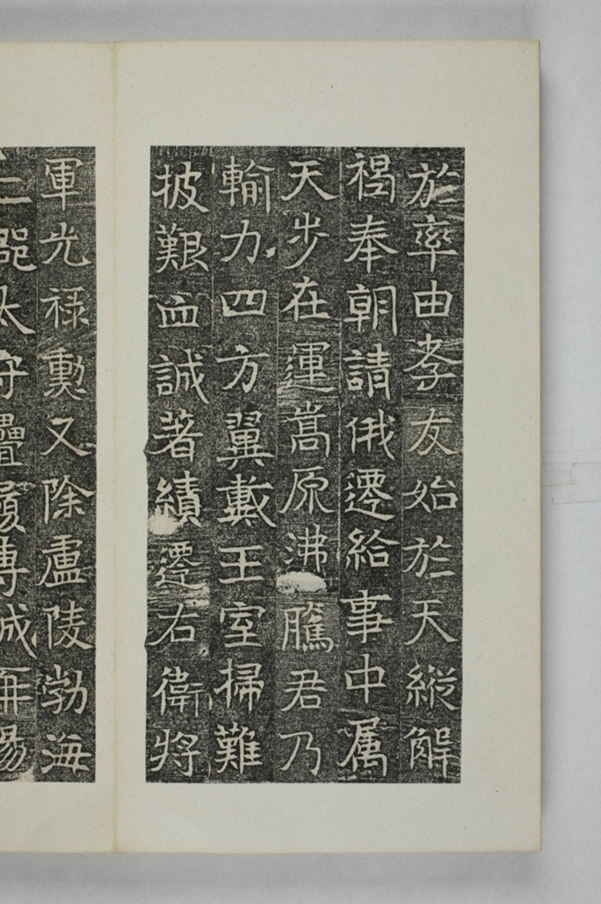 於率由孝友始於天縱解
褐奉朝請俄遷給事中属
天步在運嵩原沸騰君乃
輸力四方翼戴王室掃難
披艱血誠著績遷右衛將
軍光祿勲又除盧陵勃海
二郡太守疊